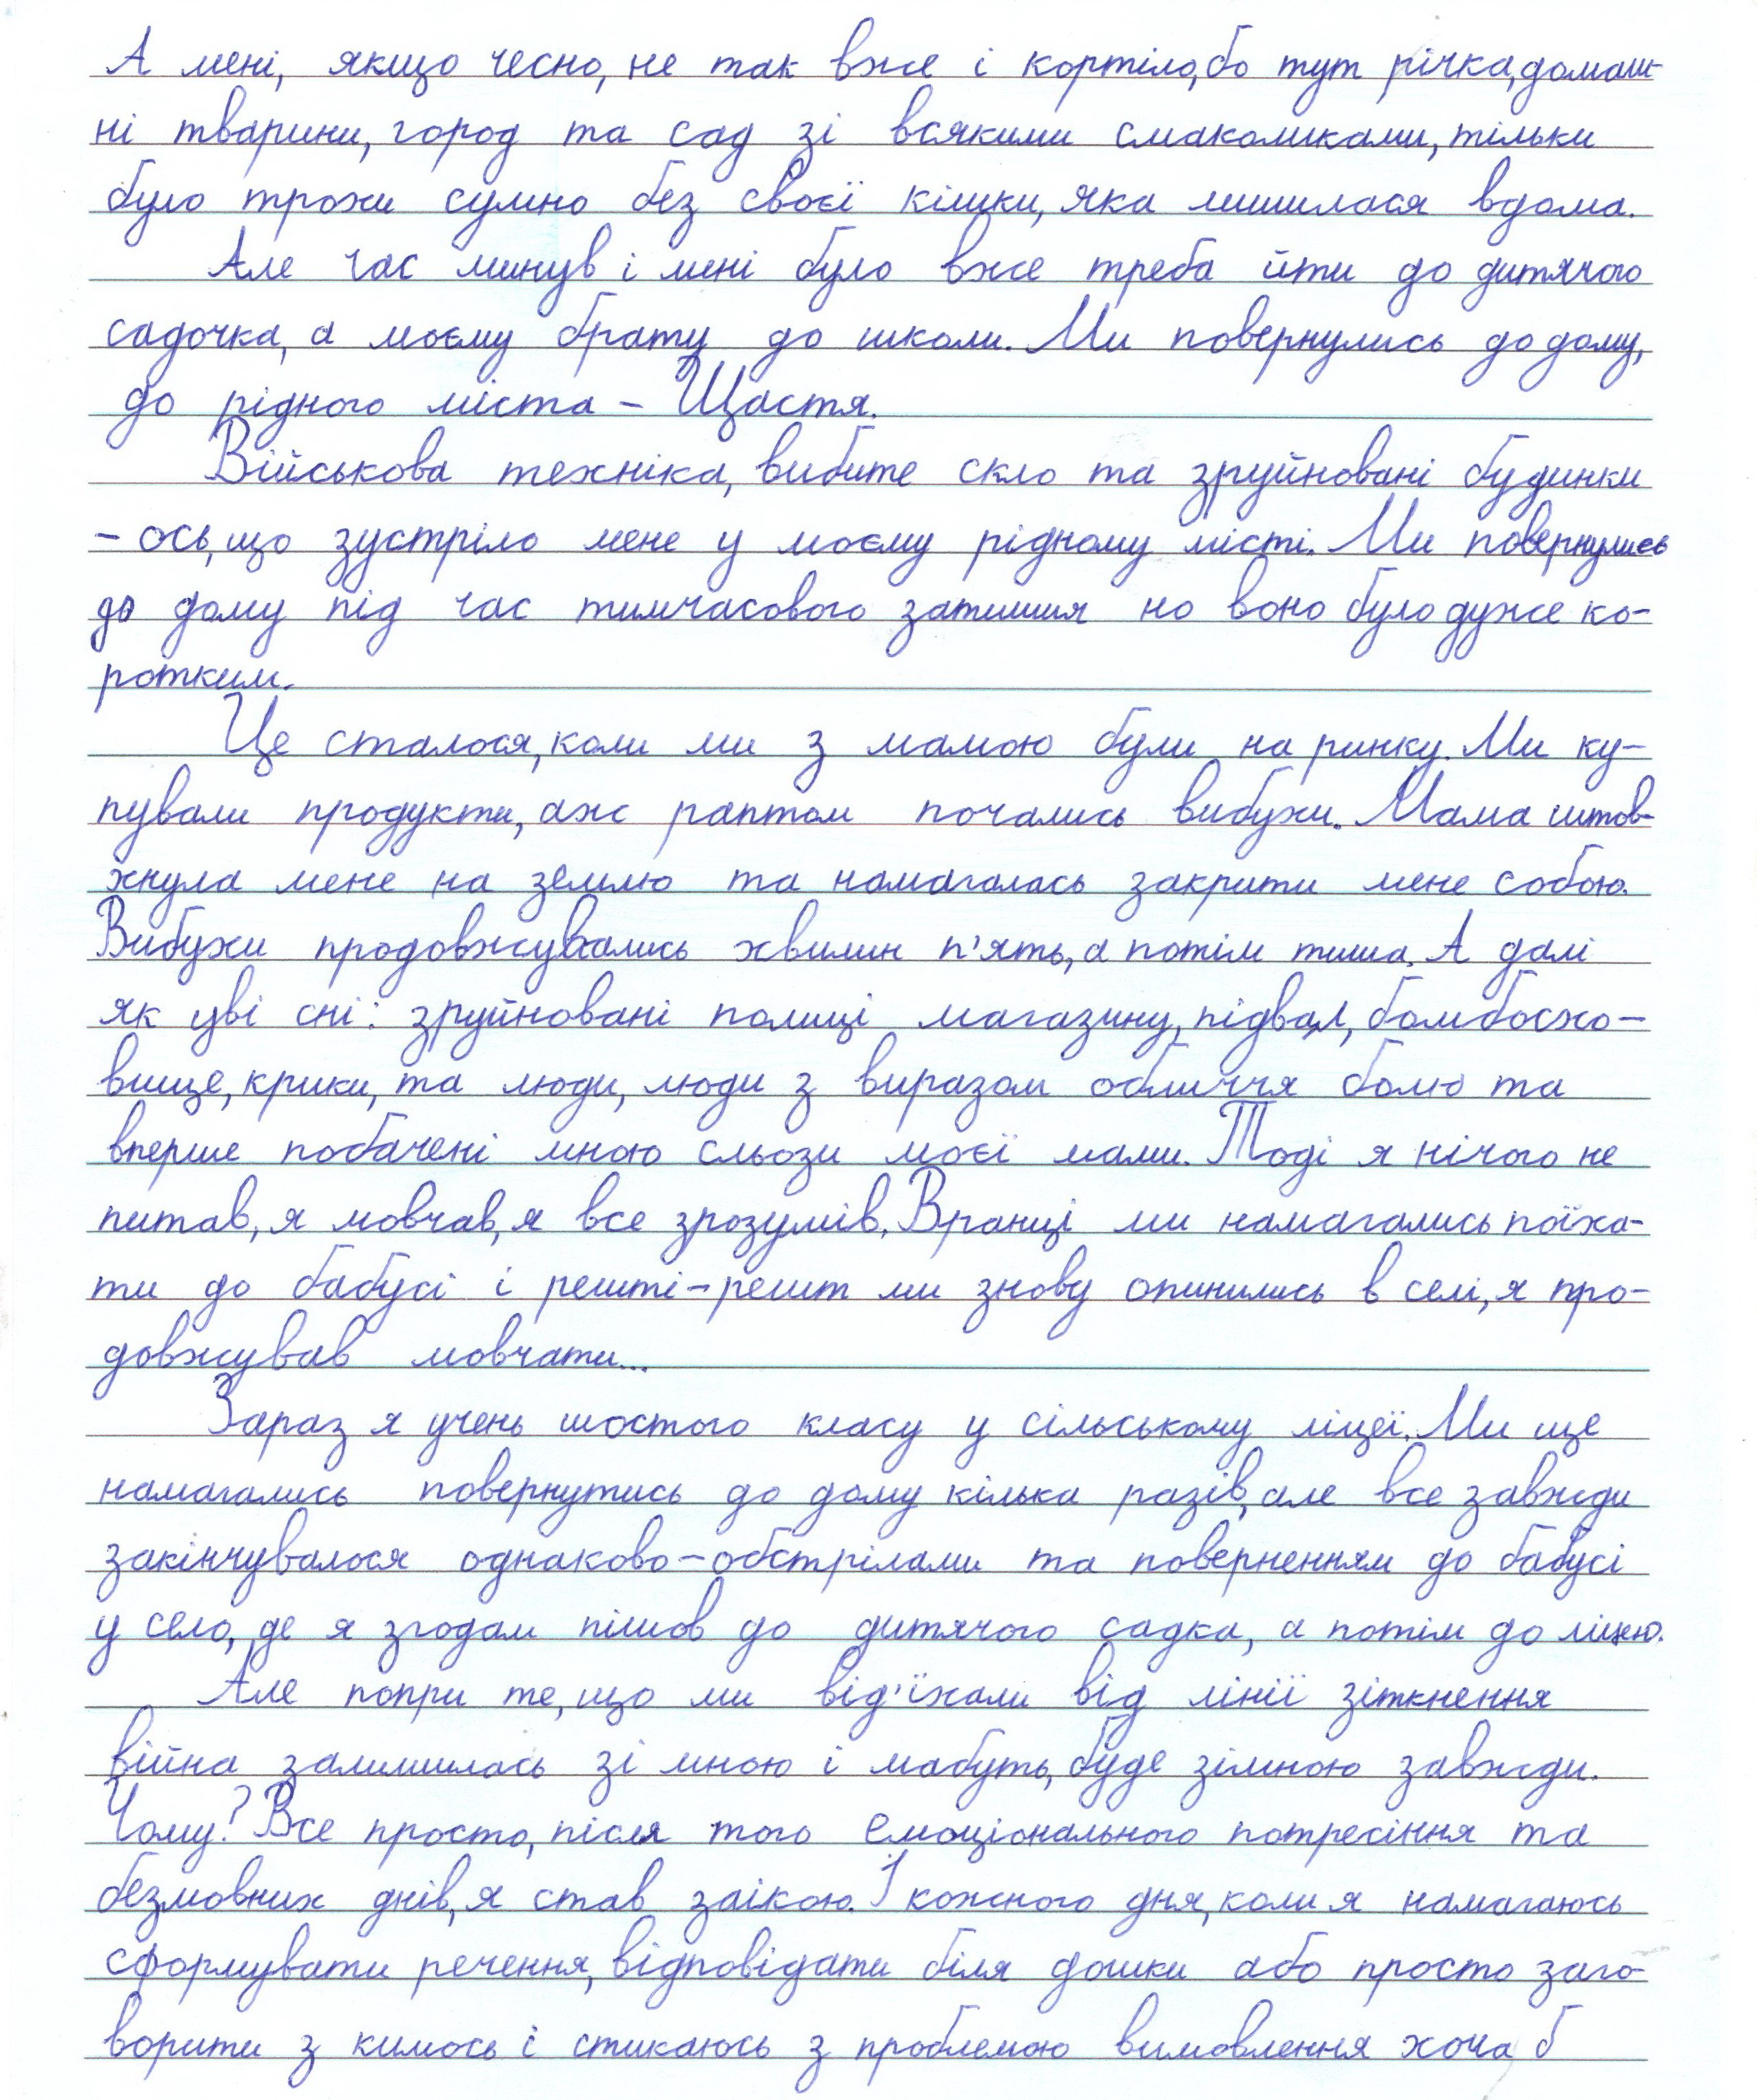 А мені, якщо чесно, не так вже і кортіло, бо тут річка, домаш-
ні тварини, город та сад зі всякими смаколиками, тільки
було трохи сумно без своєї кішки, яка лишилася вдома.
Але час минув і мені було вже треба йти до дитячого
садочка, а моєму брату до школи. Ми повернулись до дому,
до рідного міста - Щастя.
Військова техніка, вибите скло та зруйновані будинки
- ось, що зустріло мене у моєму рідному місті. Ми повернулись
до дому під час тимчасового затишшя но воно було дуже ко-
ротким.
Це сталося, коли ми з мамою були на ринку. Ми ку-
пували продукти, аж раптом почались вибухи. Мама штов-
хнула мене на землю та намагалась закрити мене собою.
Вибухи продовжувались хвилин п'ять, а потім тиша. А далі
як уві сні: зруйновані полиці магазину, підвал, бомбосхо-
вище, крики, та люди, люди з виразом обличчя болю та
вперше побачені мною сльози моєї мами. Тоді я нічого не
питав, я мовчав, я все зрозумів. Вранці ми намагались поїха-
ти до бабусі і решті-решт ми знову опинились в селі, я про-
довжував мовчати...
Зараз я учень шостого класу у сільському ліцеї. Ми ще
намагались повернутись до дому кілька разів, але все завжди
закінчувалося однаково - обстрілами та поверненням до бабусі
у село, де я згодом пішов до дитячого садка, а потім до ліцею.
Але попри те, що ми від'їхали від лінії зіткнення
війна залишилась зі мною і мабуть, буде зімною завжди.
Чому? Все просто, після того емоціонального потресіння та
безмовних днів, я став заікою. І кожного дня, коли я намагаюсь
сформувати речення, відповідати біля дошки або просто заго-
ворити з кимось і стикаюсь з проблемою вимовлення хоча б